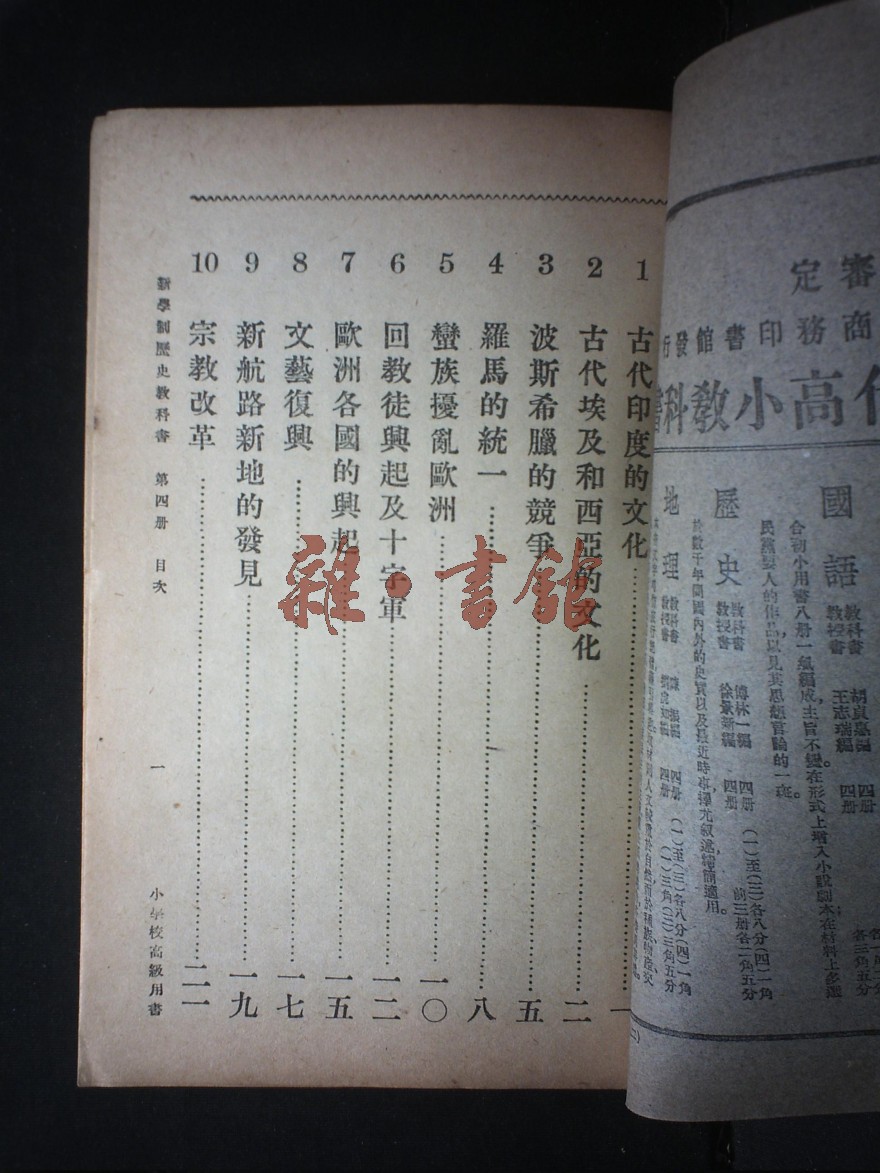 1 古代印度的文化 一
2 古代埃及和西亞的文化 二
3 波斯希臘的競爭 五
4 羅馬的統一 八
5 蠻族擾亂歐洲 一〇
6 回教徒興起及十字軍 一二
7 歐洲各國的興起 一五
8 文藝復興 一七
9 新航路新地的發見 一九
10 宗教改革 二一
新學制歷史教科書 第四册 目次 一 小學校高級用書
雜·書館
審定
商務印書館發行
代高小教科書
國語
教科書 胡貞惠編 四册
教授書 王志瑞編 四册
合初小用書八册一氣編成,主旨不變在形式上增入小說劇本在材料上多選
民族偉人的作品以見其思想言論的一斑。
歷史
教科書 傅林一編 四册 (一)至(三)各八分(四)一角
教授書 徐景新編 四册 前三册各二角五分
於數千年間國內外的史實以及最近時事擇尤叙述繁簡適用。
地理
教科書 四册
教授書 四册